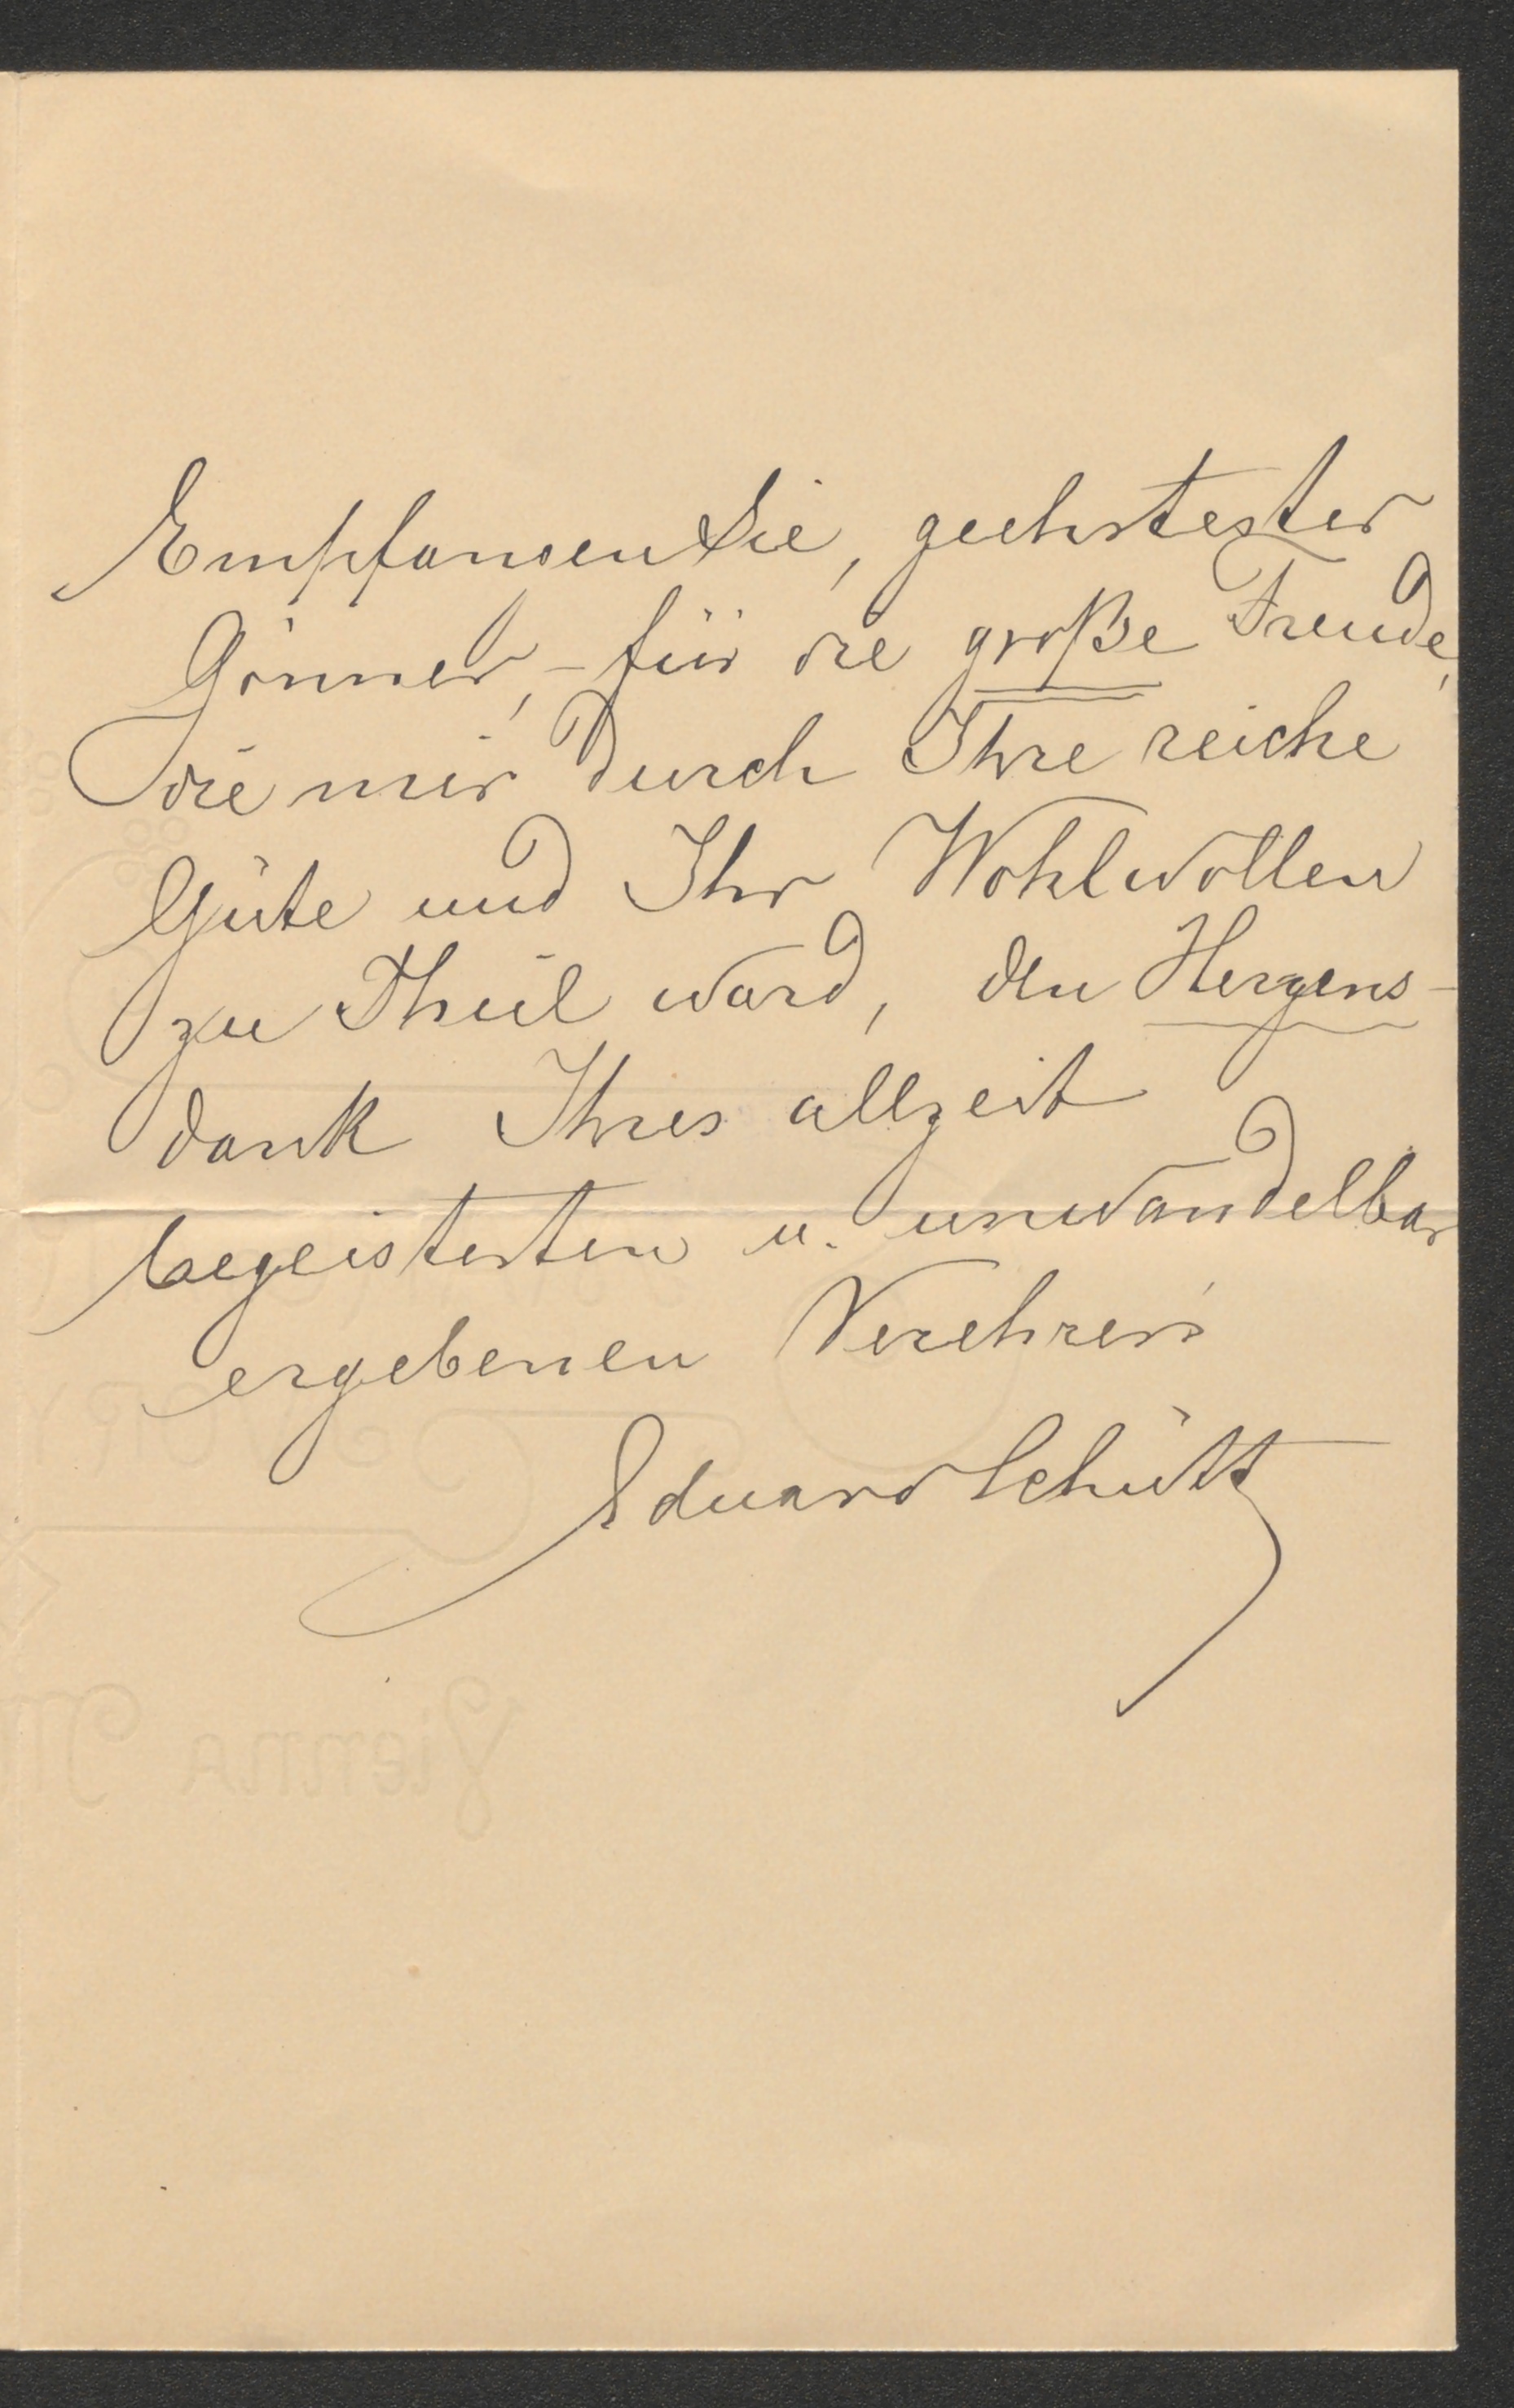 Empfangen Sie, geehrtester
Gönner, – für die große Freude,
die mir durch Ihre reiche
Güte und Ihr Wohlwollen
zu Theil ward, den Herzens-
dank Ihres allzeit
begeisterten u. unwandelbar
ergebenen Verehrers
Eduard Schütt
Vienna